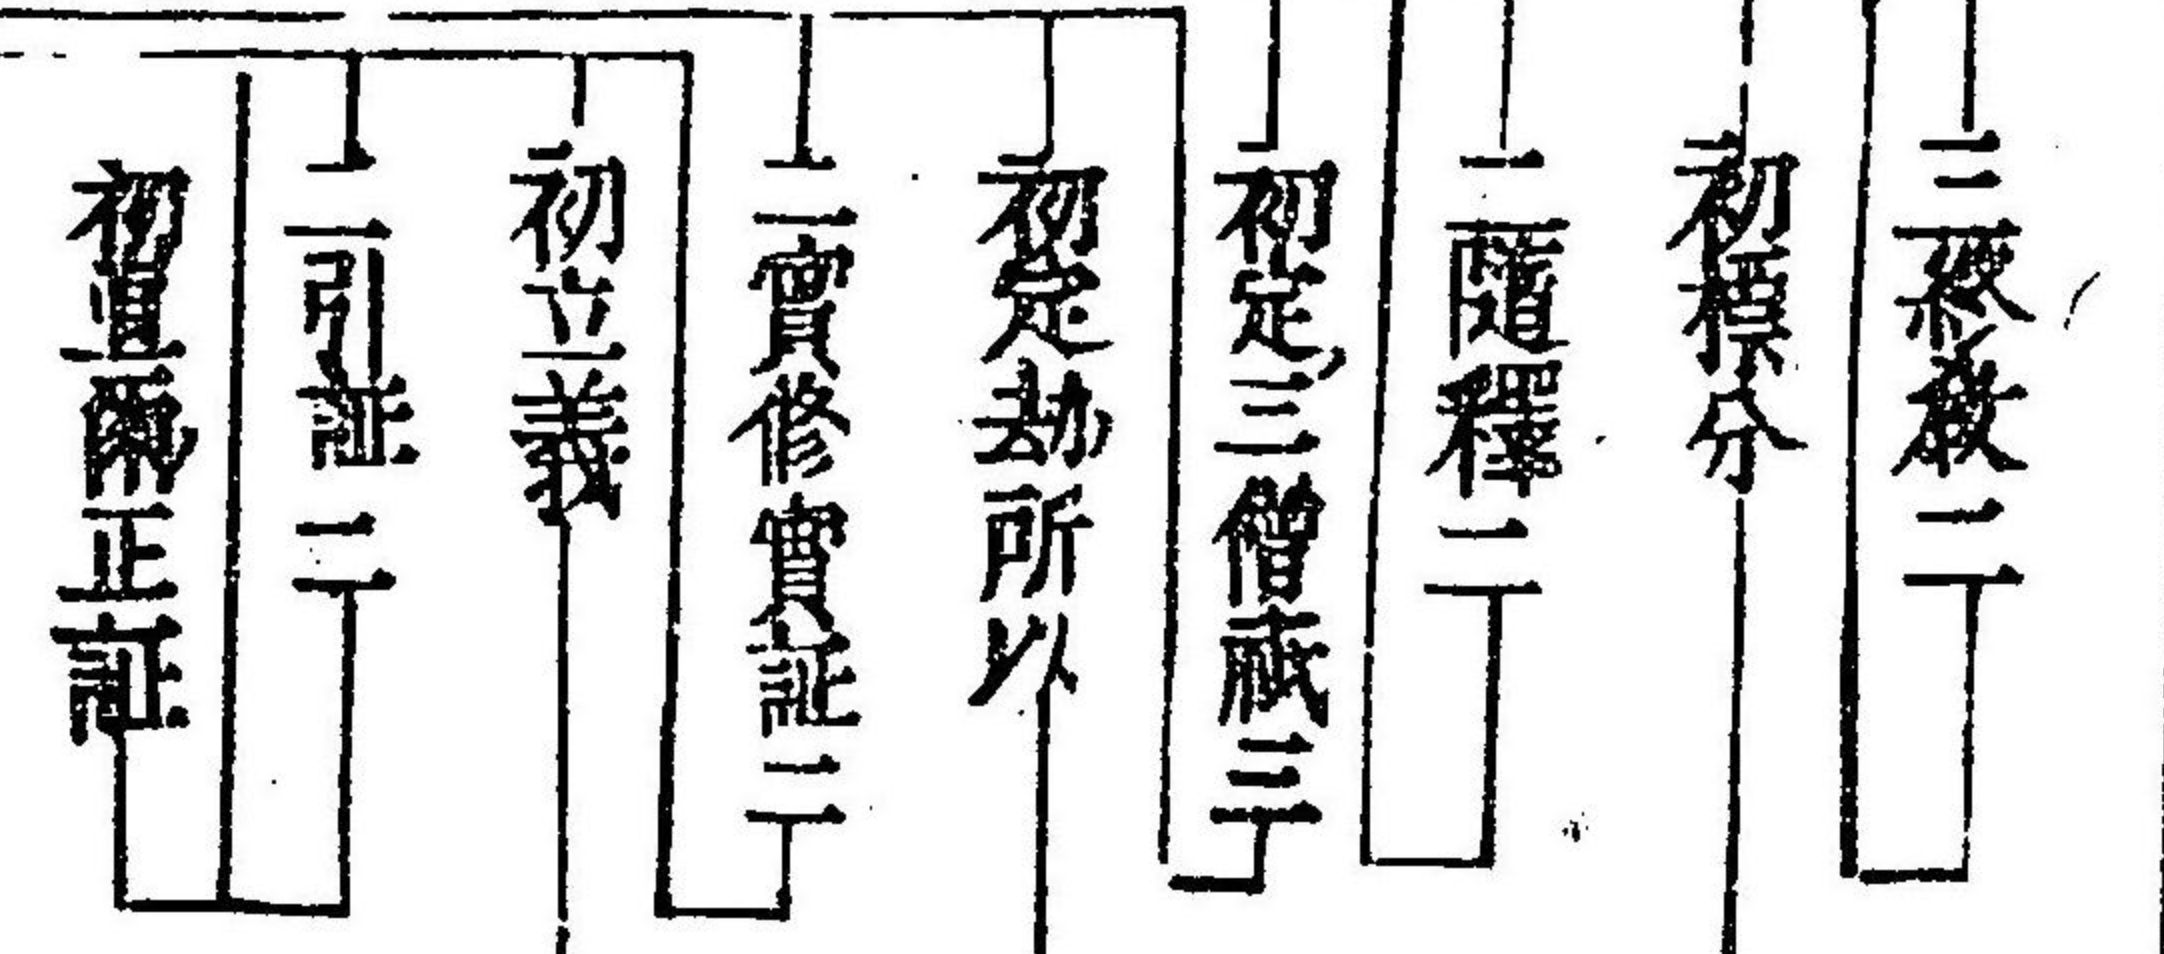 三終教二
初標分
二隨釋二
初定三僧祇三
初定劫所以
二實修實証二
初立義
二引証二
初正証